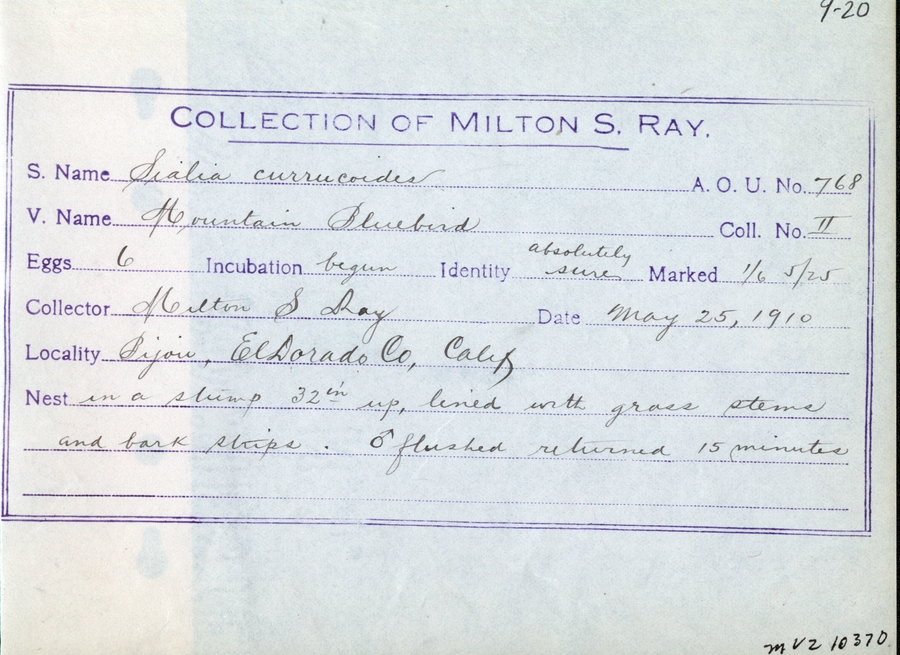 9-20
COLLECTION OF MILTON S. RAY.
S. Name Sialia currucoides A. O. U. No. 768
V. Name Mountain Bluebird Coll. No. II
Eggs 6 Incubation begun Identity absolutely sure Marked 1/6 5/25
Collector Milton S Ray Date May 25, 1910
Locality Bijou, ElDorado Co, Calif
Nest in a stump 32 in up, lined with grass stems
and bark strips. ♂ flushed returned 15 minutes
MVZ 10370